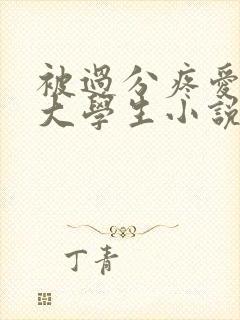 被過分疼愛
大學生小說
丁青